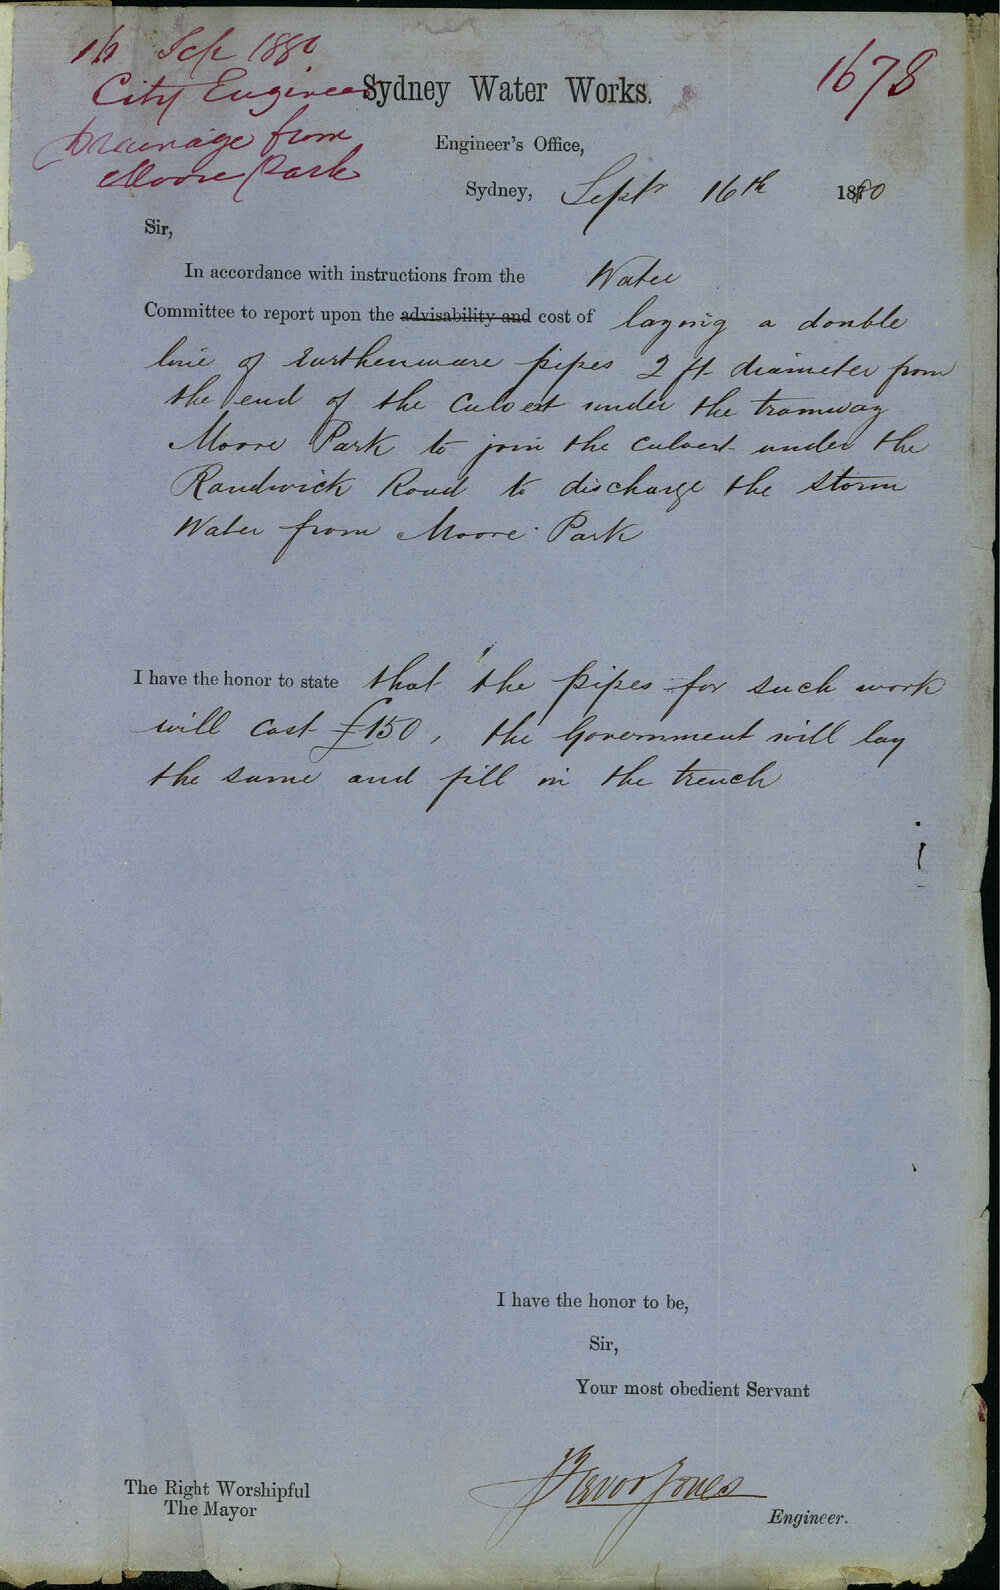 16 Sep 1880
City Engineer
Drainage from
Moore Park
1678
Sydney Water Works.
Engineer's Office,
Sydney, Septr 16th 1880
Sir,
In accordance with instructions from the Water
Committee to report upon the advisability and cost of laying a double
line of Earthenware pipes 2 ft diameter from
the end of the culvert under the tramway
Moore Park to join the culvert under the
Randwick Road to discharge the storm
Water from Moore Park
I have the honor to state that the pipes for such work
will cost £150, the Government will lay
the same and fill in the trench
I have the honor to be,
Sir,
Your most obedient Servant
Trevor Jones
Engineer.
The Right Worshipful
The Mayor